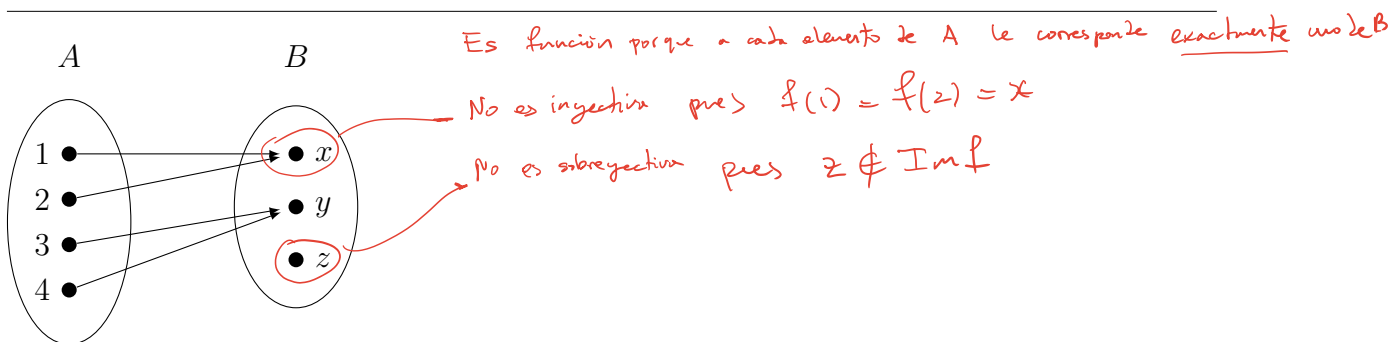 Es función porque a cada elemento de A le corresponde exactamente uno de B
A B
No es inyectiva pues f(1) = f(2) = x
1 x
No es sobreyectiva pues z ∉ Im f
2
y
3
z
4